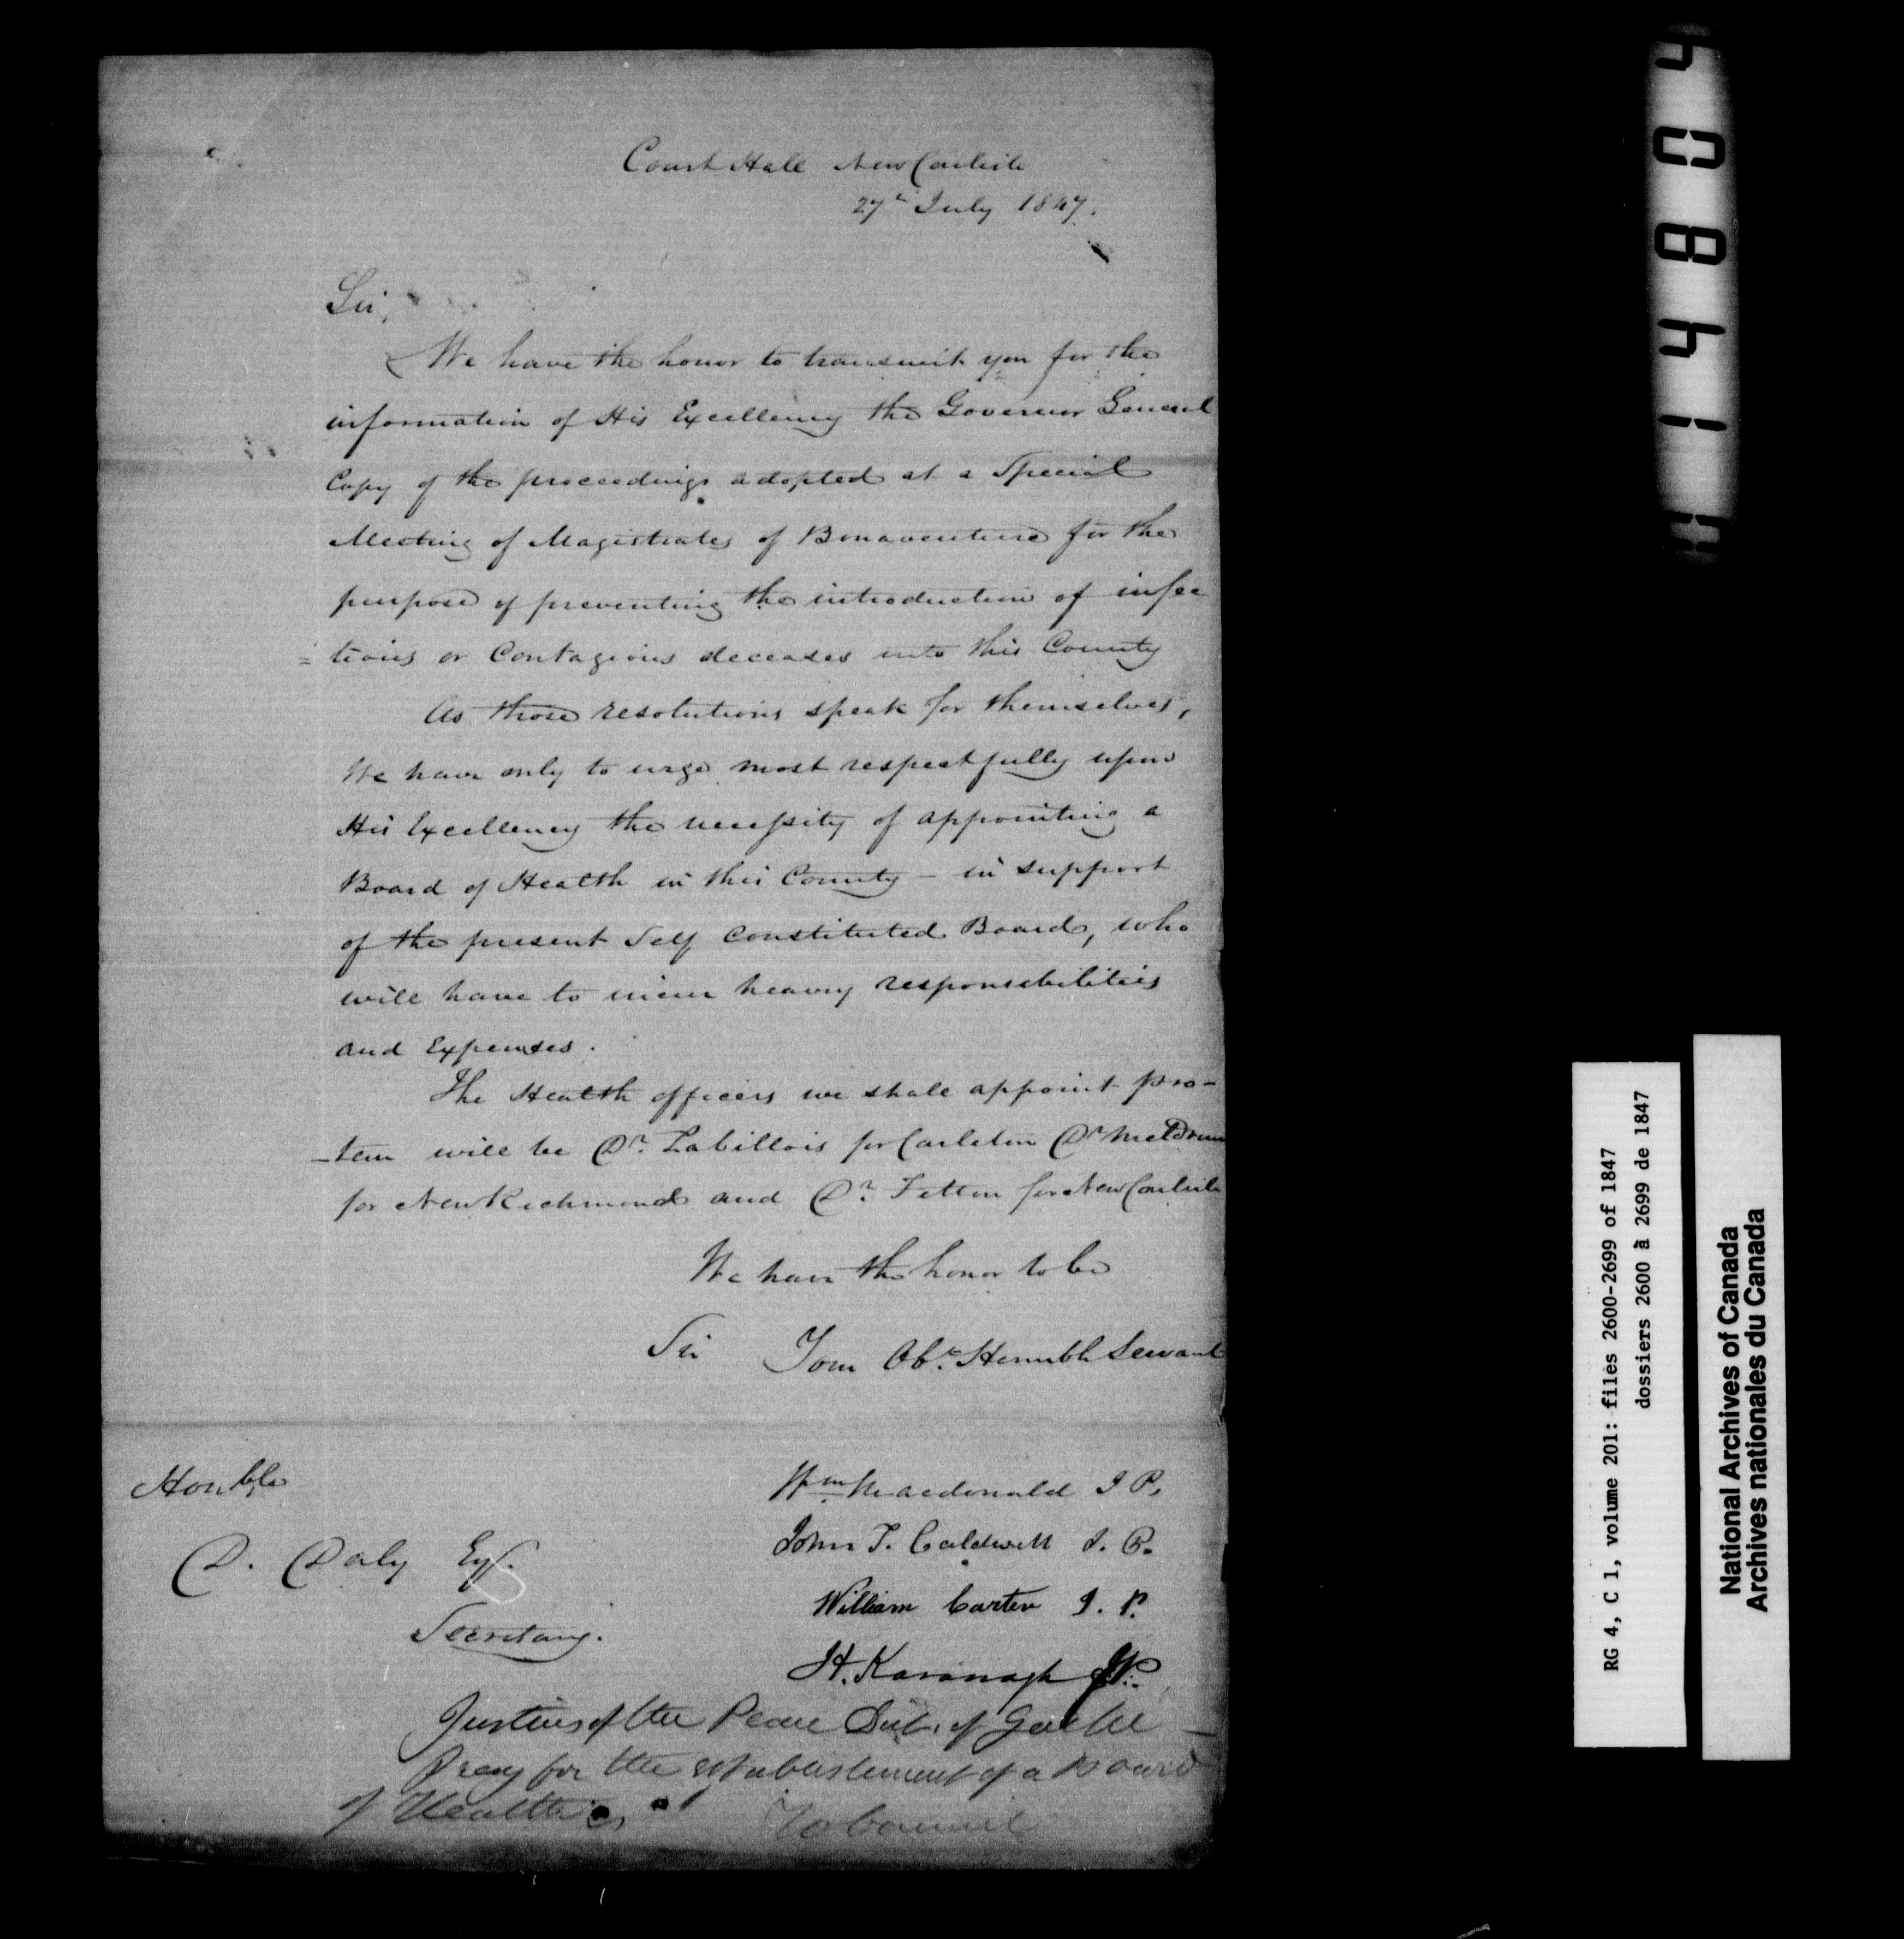 Court Hall New Carlisle
27th July 1847.
Sir,
We have the honor to transmit you for the
information of His Excellency the Governor General
Copy of the proceedings adopted at a Special
Meeting of Magistrates of Bonaventure for the
purpose of preventing the introduction of infec
= tious or Contagious deceases into this County
As those resolutions speak for themselves,
We have only to urge most respectfully upon
His Excellency the necessity of appointing a
Board of Health in this County - in support
of the present Self Constituted Board, who
will have to incur heavy responsibilities
and Expenses.
The Health officers we shall appoint pro-
-tem will be Dr. Labillois for Carleton Dr McDrum
for New Richmond and Dr. Fetton for New Carlisle
We have the honor to be
Sir Your Obt. Humble Servant
Wm Macdonald J P.
John T. Caldwell J. P.
William Carter J. P.
H. Kavanagh JP.
Honble
D. Daly Esq.
Secretary.
Justices of the Peace Dist. of Gaspé -
Pray for the establishment of a Board
of Health
To Council
4 0 8 4 1
RG 4, C 1, volume 201: files 2600-2699 of 1847
dossiers 2600 à 2699 de 1847
National Archives of Canada
Archives nationales du Canada